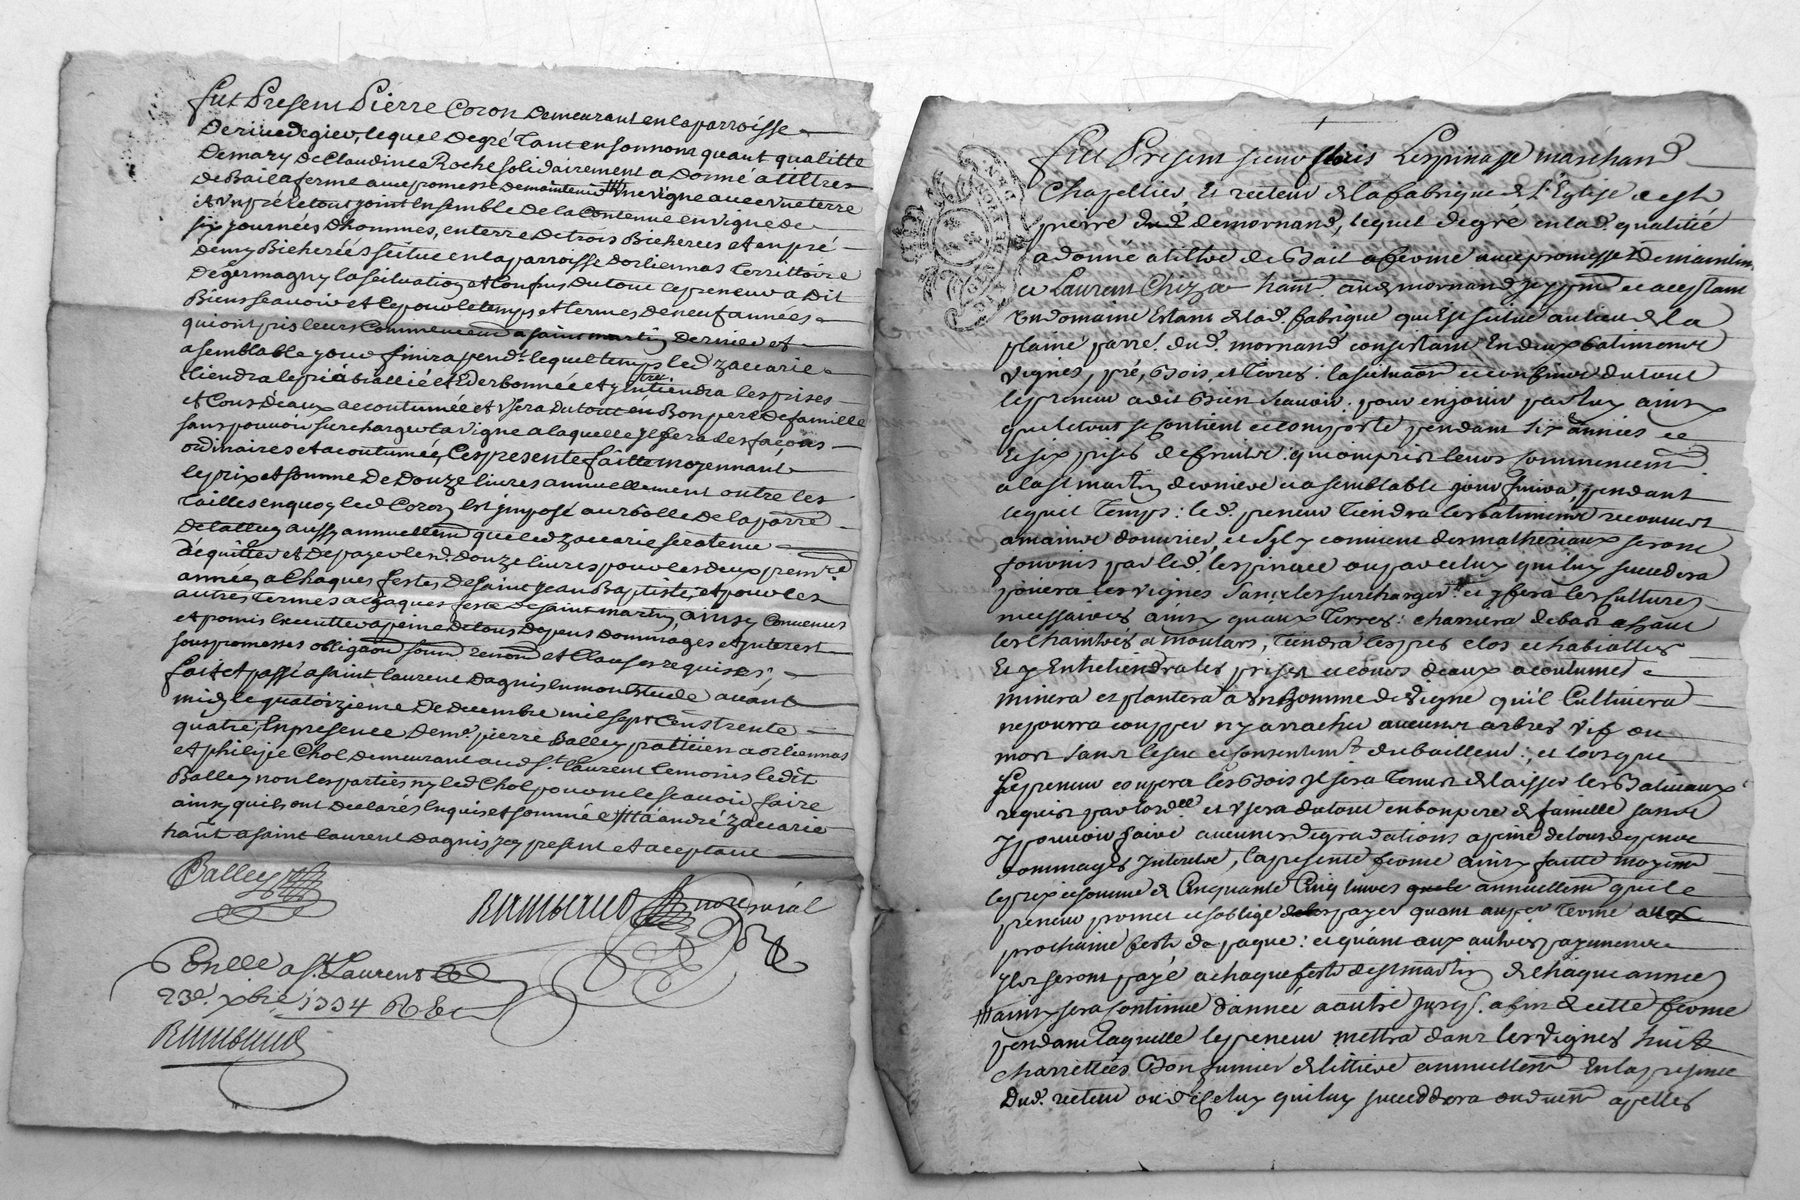 fut Present Pierre Coron demeurant en la parroisse
de rivedegier, lequel de gré tant en son nom quant qualitte
de mary de Claudine Roche solidairement a donné a tiltres
de Bail a ferme avec promesse de maintenir # une vigne avec une terre
et un pré le tout joint ensemble de la Contenue en vigne de
six journées d'hommes, en terre de trois Bicherées et en pré
demy Bicherées scittue en la parroisse d'orliennas territtoire
de germagny la scituation et Confins du tout le preneur a dit
Bien sçeavoir et ce pour le temps et termes de neuf années
qui ont pris leurs commencemt a saint martin dernier et
a semblable jour finira pendt lequel temps led zaccarie
tiendra le pré et y entretiendra les prises
et Cours d'eaux accoutumée et usera du tout en Bon pere de famille
sans pouvoir surcharger la vigne a laquelle jl fera les façons
ordinaires et accoutumée, Ces presente faitte moyennant
le prix et somme de Douze livres annuellement outre les
tailles en quoy led Coron est jmposé au rolle de la parre
aussy annuellemt que led zaccarie sera tenu
d'equitter et de payer lesd. douze livres pour les deux premre
année, a Chaques festes de saint Jean Baptiste, et pour les
autres termes a Chaques feste de saint martin, ainsy Convenus
et promis Executter a peine de tous depens dommages et jnterest
sous promesses obligaon soumd renond et Clauses requises,
fait et passé a saint laurent dagnis en mon Estude avant
midy le quatorzieme de decembre mil sept Cens trente
quatre, En presence de me. pierre Balley pratticien a orliennas
et philipe Chol demeurant aud st. laurent temoins ledit
Balley non les parties ny led Chol pour ne le sçeavoir faire
ainsy qu'ils ont declarés Enquis et sommée # a andré zaccarie
hañt a saint laurent dagnis jcy present et acceptant
Balley
nore royal
Conllé a st. Laurent le
23e. xbre 1734
fut Present sieur Lespinasse marchand
Chapellier Et recteur de la fabrique de L'Eglise de st
pierre dud. de mornand, lequel de gré en lad. qualitté
a donné a tiltre de Bail a ferme avec promesse de mainteni
a Laurent Chizat hañt aud mornand jcy pnt et aceptant
Un domaine Estant de lad. fabrique qui Est situé au lieu de la
plaine parre. dud. mornand consistant En deux batiments
vignes, pré, Bois, et Terres: la situaon et confins du tout
le preneur a dit Bien sçeavoir. pour en jouir par luy ainsy
que le tout se contient et comporte pendant six années et
Et six prises de fruits. qui ont pris leurs commencemt
a la st martin derniere et a semblable jour finira, pendant
lequel Temps: led. preneur Tiendra les batiments recouvert
a maint d'ouvrier, et s'jl y convient des matheriaux seront
fournis par led. Lespinace ou par celuy qui luy succedera
les vignes sans les surcharger et y fera les cultures
necessaires ainsy qu'aux Terres: charriera de bas a haut
les Chaintres a moutars; Tiendra les prés clos
Et y Entretiendra les prises et cours d'eaux acoutumés
minera et plantera un homme de vigne qu'il Cultivera
ne pourra coupper ny arracher aucuns arbres vif ou
mort sans le sçeu et consentemt. du bailleur; et lorsque
Le preneur coupera les Bois jl sera Tenu de laisser les Baliveaux
requis par l'ordce et usera du tout en bon pere de famille sans
y pouvoir faire aucunes degradations a peine de tous depens
dommages jnterets, la presente ferme ainsy faitte moyent
le prix et somme de Cinquante Cinq livres annuellemt que le
preneur promet et s'oblige payer quant au per Terme a la
prochaine feste de paque: et quant aux autres payements
jls seront payé a chaque feste de st martin de chaque année
# ainsy sera continué d'année a autre jusqs. a fin de cette ferme
pendant laquelle le preneur mettra dans les vignes huit
charrettées Bon fumier de littiere annuellemt En la presence
Dud. recteur ou de celuy qui luy succeddera ou duemt apellés